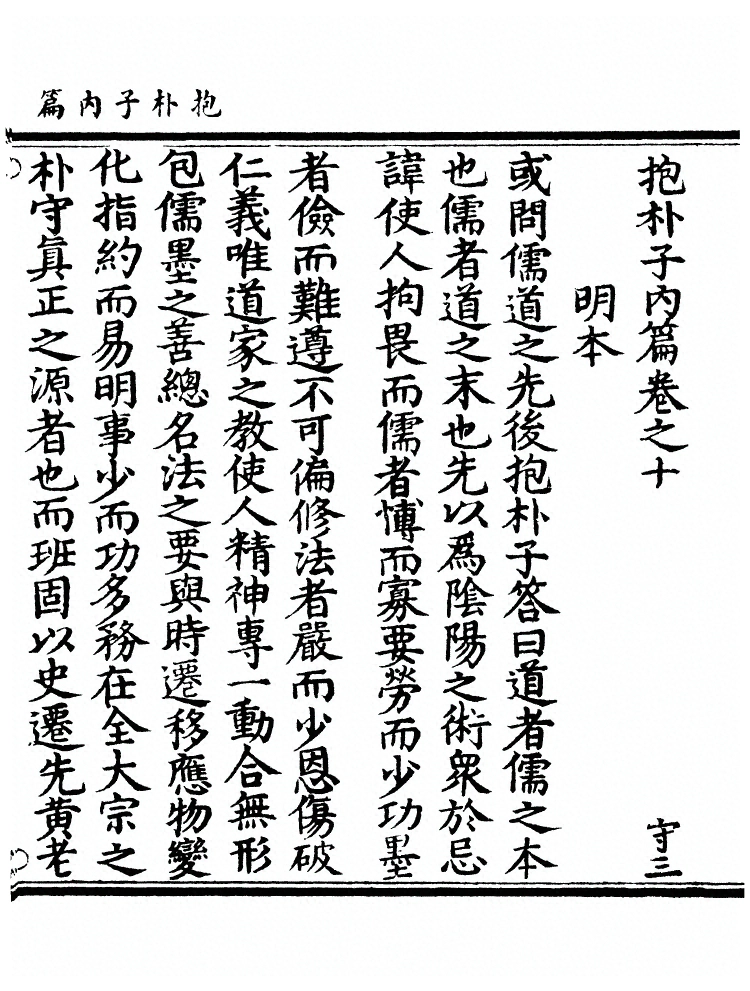 抱朴子內篇
抱朴子內篇卷之十
守三
明本
或問儒道之先後抱朴子答曰道者儒之本
也儒者道之末也先以爲陰陽之術衆於忌
諱使人拘畏而儒者博而寡要勞而少功墨
者儉而難遵不可偏修法者嚴而少恩傷破
仁義唯道家之教使人精神專一動合無形
包儒墨之善總名法之要與時遷移應物變
化指約而易明事少而功多務在全大宗之
朴守真正之源者也而班固以史遷先黃老